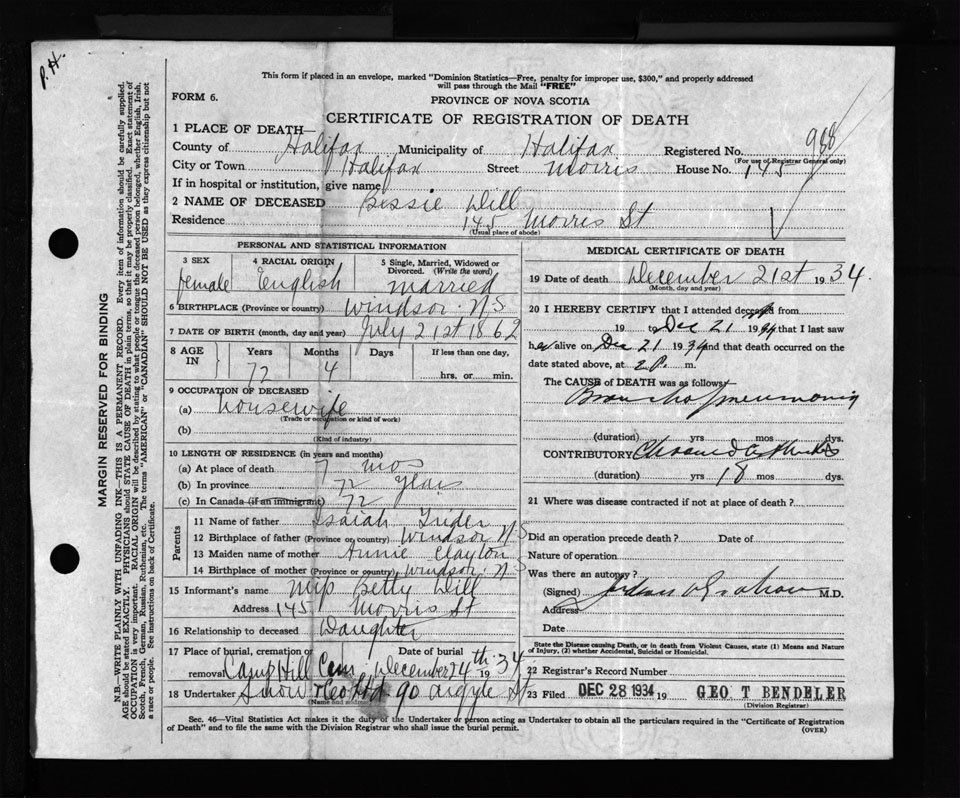 P.H.
This form if placed in an envelope, marked "Dominion Statistics—Free, penalty for improper use, $300," and properly addressed
will pass through the Mail "FREE"
FORM 6.
PROVINCE OF NOVA SCOTIA
CERTIFICATE OF REGISTRATION OF DEATH
1 PLACE OF DEATH—
County of Halifax Municipality of Halifax Registered No. 988
(For use of Registrar General only)
City or Town Halifax Street Morris House No. 145
If in hospital or institution, give name
2 NAME OF DECEASED Bessie Dill
Residence 145 Morris St
(Usual place of abode)
PERSONAL AND STATISTICAL INFORMATION
3 SEX female
4 RACIAL ORIGIN English
5 Single, Married, Widowed or Divorced. (Write the word) married
6 BIRTHPLACE (Province or country) Windsor N S
7 DATE OF BIRTH (month, day and year) July 21st 1862
8 AGE IN Years Months Days If less than one day,
72 4 hrs. or min.
9 OCCUPATION OF DECEASED
(a) housewife
(Trade or occupation or kind of work)
(b)
(Kind of industry)
10 LENGTH OF RESIDENCE (in years and months)
(a) At place of death 7 mos
(b) In province 72 years
(c) In Canada (if an immigrant) 72
Parents
11 Name of father Isaiah
12 Birthplace of father (Province or country) Windsor N S
13 Maiden name of mother Annie Clayton
14 Birthplace of mother (Province or country) Windsor N S
15 Informant's name Miss Betty Dill
Address 145 Morris St
16 Relationship to deceased Daughter
17 Place of burial, cremation or removal Camp Hill Cem Date of burial December 24th 1934
18 Undertaker Snow & Co Ltd 90 Argyle St
(Name and address)
MEDICAL CERTIFICATE OF DEATH
19 Date of death December 21st 1934.
(Month, day and year)
20 I HEREBY CERTIFY that I attended deceased from
19 to Dec 21 1934 that I last saw
her alive on Dec 21 1934 and that death occurred on the
date stated above, at 2 P. m.
The CAUSE of DEATH was as follows:
Broncho pneumonia
(duration) yrs mos dys.
CONTRIBUTORY
(duration) yrs 18 mos dys.
21 Where was disease contracted if not at place of death?
Did an operation precede death? Date of
Nature of operation
Was there an autopsy?
(Signed) M.D.
Address
Date
State the Disease causing Death, or in Death from Violent Causes, state (1) Means and Nature
of Injury, (2) whether Accidental, Suicidal or Homicidal.
22 Registrar's Record Number
23 Filed DEC 28 1934 19 GEO T BENDELER
(Division Registrar)
Sec. 46—Vital Statistics Act makes it the duty of the Undertaker or person acting as Undertaker to obtain all the particulars required in the "Certificate of Registration
of Death" and to file the same with the Division Registrar who shall issue the burial permit.
(OVER)
MARGIN RESERVED FOR BINDING
N.B.—WRITE PLAINLY WITH UNFADING INK—THIS IS A PERMANENT RECORD. Every item of information should be carefully supplied.
AGE should be stated EXACTLY. PHYSICIANS should STATE CAUSE OF DEATH in plain terms, so that it may be properly classified. Exact statement of
OCCUPATION is very important. RACIAL ORIGIN will be described by stating to what people or tongue the deceased person belonged, whether English, Irish,
Scotch, French, German, Russian, Ruthenian, etc. The terms "AMERICAN" or "CANADIAN" SHOULD NOT BE USED as they express citizenship but not
a race or people. See instructions on back of Certificate.